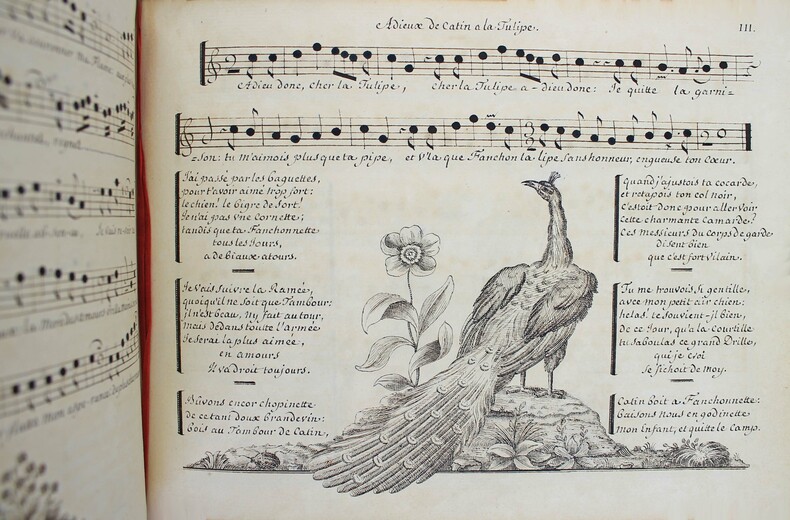 Adieux de Catin a la Tulipe.
111.
Adieu donc, cher la Tulipe, cher la Tulipe a-dieu donc: Je quitte la garni=
=son: tu m'aimois plus que ta pipe, et v'la que Fanchon la lipe sans honneur, engueuse ton Cœur.
J'ai passé par les baguettes,
pour t'avoir aimé trop fort:
le chien! le bigre de sort!
Je n'ai pas une Cornette;
tandis que ta Fanchonnette
tous les Jours,
a de biaux atours.
Je vais suivre la Ramée,
quoiqu'il ne soit que Tambour:
il n'est beau, ny fait au tour,
mais dedans toutte l'armée
Je serai la plus aimée,
en amours
Il va droit toujours.
Bûvons encor chopinette
de ce tant doux brandevin:
bois au Tambour de Catin,
quand j'ajustois ta cocarde,
et retapois ton col noir,
c'estoit donc pour aller voir
cette charmante Camarde?
Ces messieurs du Corps de garde
disent bien
que c'est fort vilain.
Tu me trouvois si gentille,
avec mon petit air chien:
helas! te souvient-il bien,
de ce Jour, qu'a la Courtille
tu saboulas ce grand Drille,
qui je croi
se fichoit de moy.
Catin boit a Fanchonnette:
baisons nous en godinette
mon Enfant, et quitte le Camp.